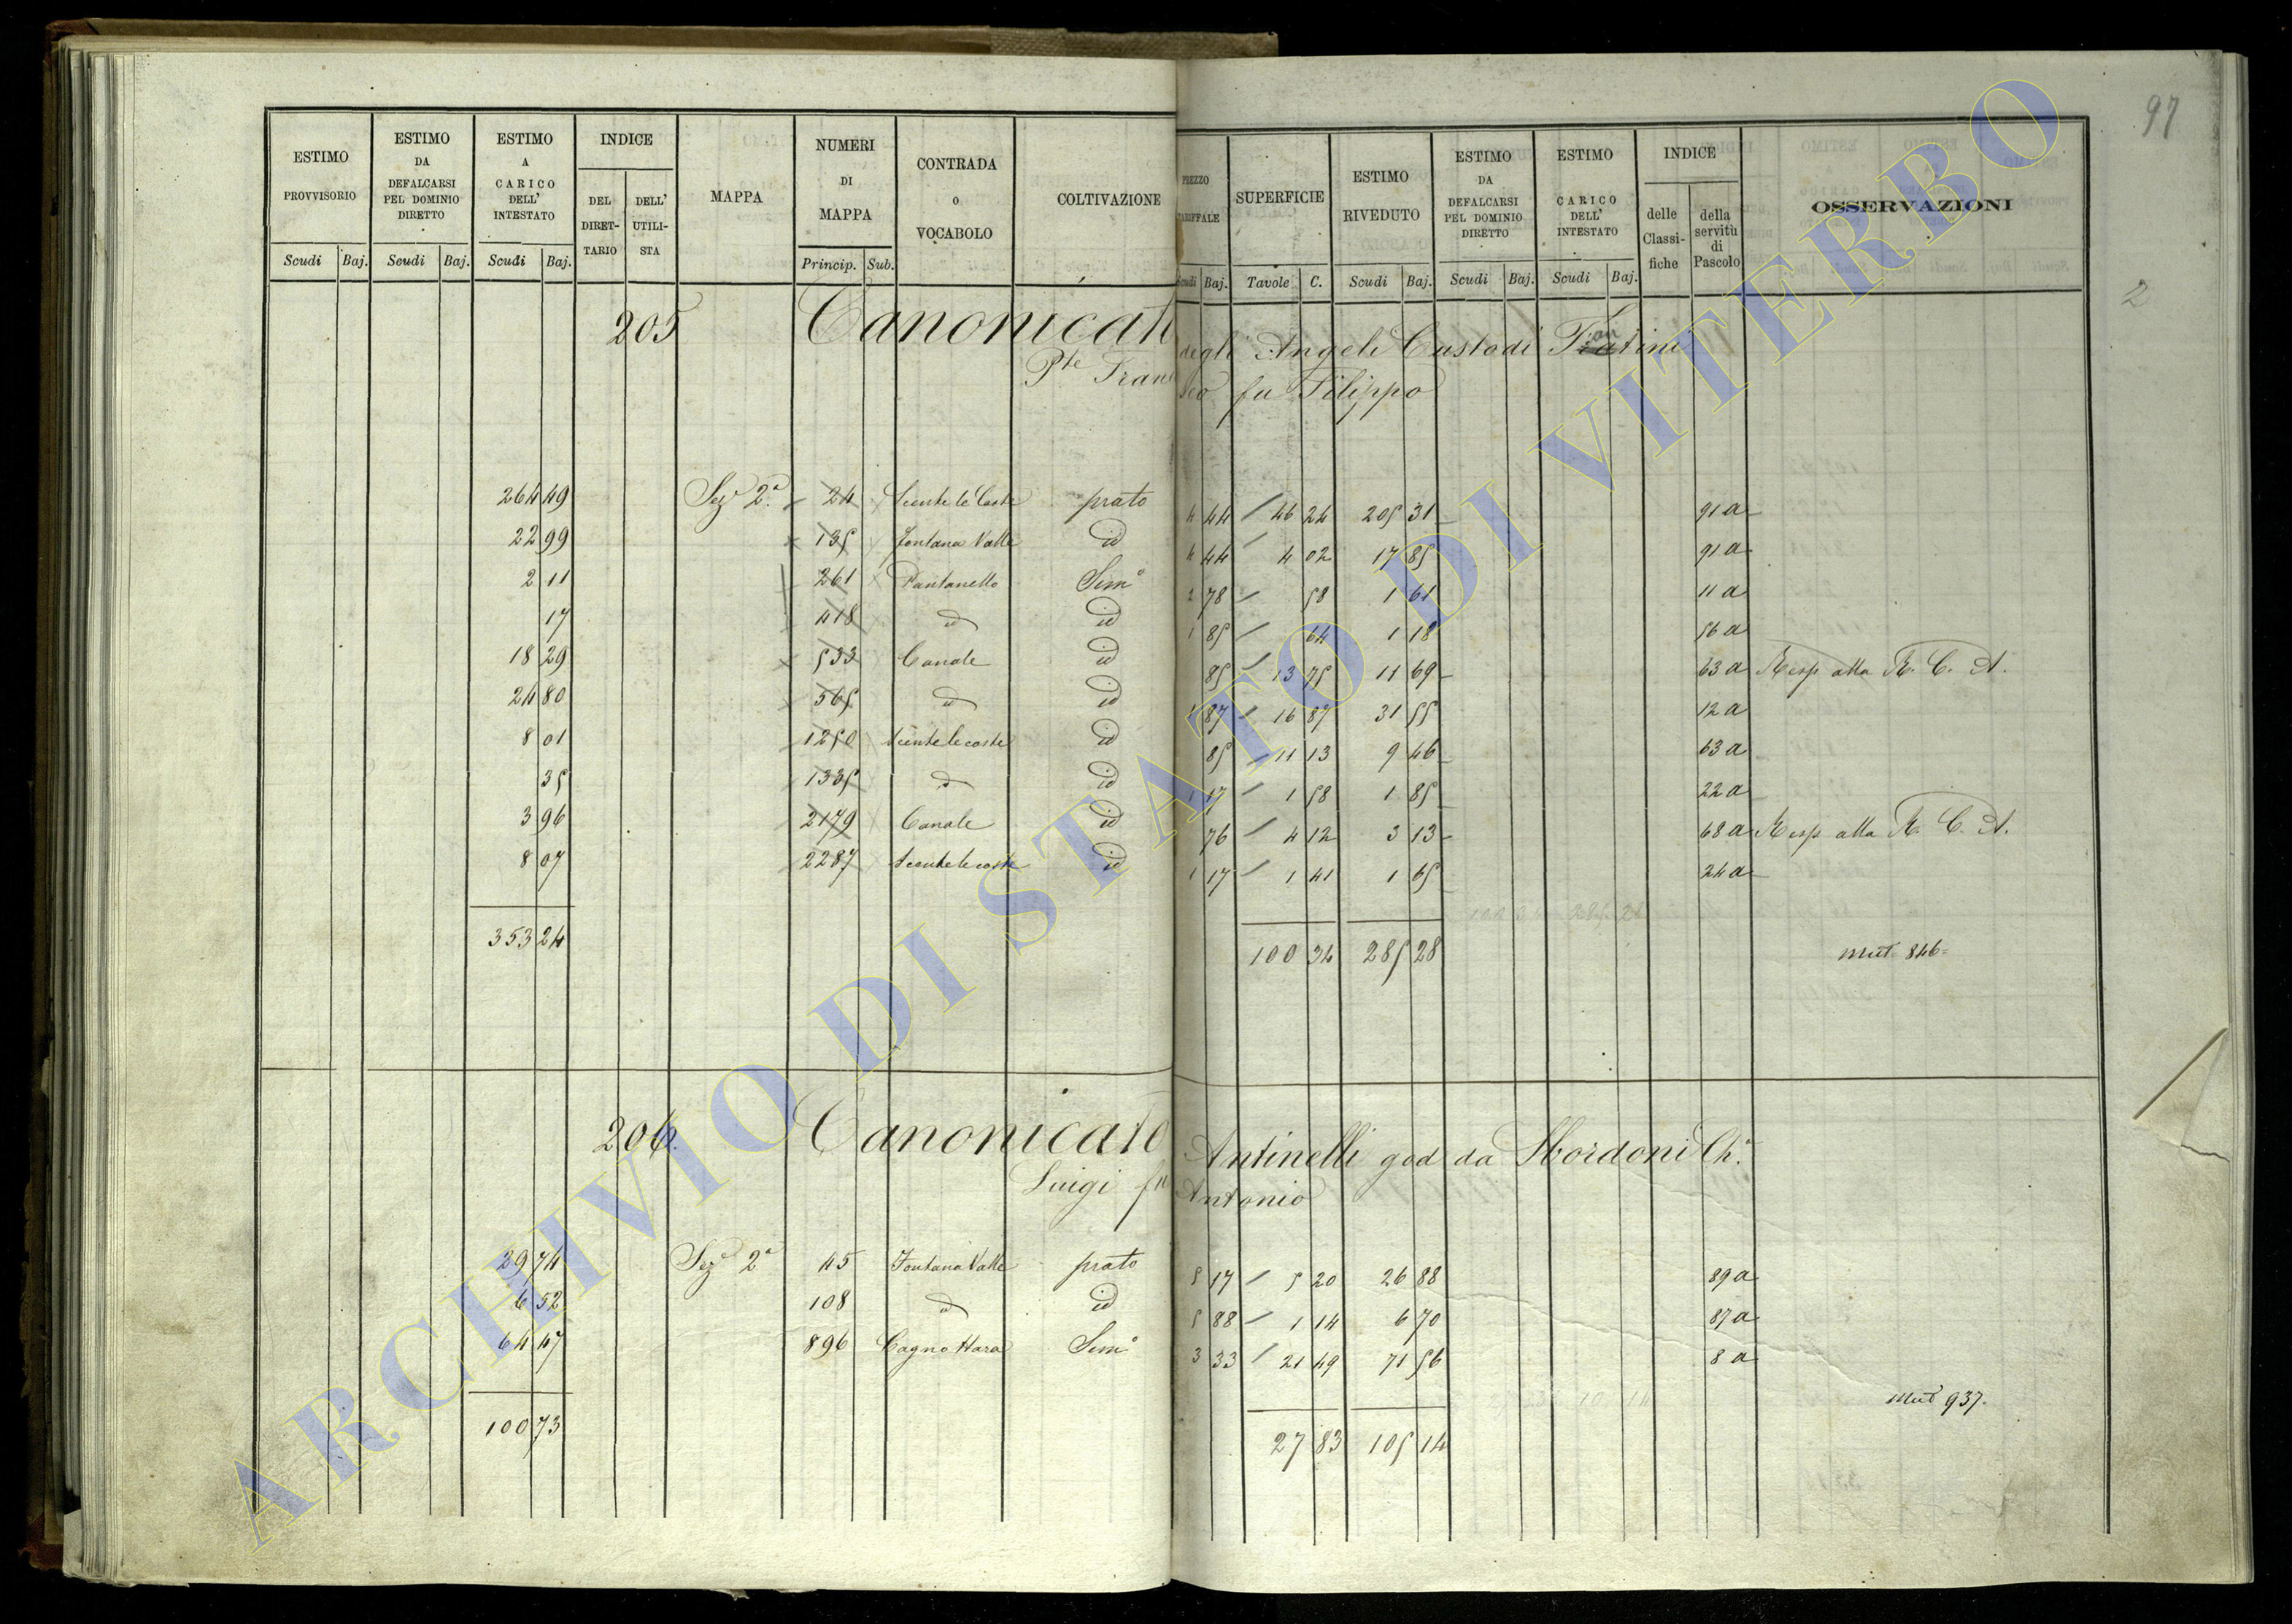 97
2
ESTIMO PROVVISORIO Scudi Baj.
ESTIMO DA DEFALCARSI PEL DOMINIO DIRETTO Scudi Baj.
ESTIMO A CARICO DELL' INTESTATO Scudi Baj.
INDICE DEL DIRET-TARIO DELL' UTILI-STA
MAPPA
NUMERI DI MAPPA Princip. Sub.
CONTRADA o VOCABOLO
COLTIVAZIONE
PREZZO TARIFFALE Scudi Baj.
SUPERFICIE Tavole C.
ESTIMO RIVEDUTO Scudi Baj.
ESTIMO DA DEFALCARSI PEL DOMINIO DIRETTO Scudi Baj.
ESTIMO CARICO DELL' INTESTATO Scudi Baj.
INDICE delle Classi-fiche della servitù di Pascolo
OSSERVAZIONI
205 Canonicato degli Angeli Custodi
Pte Franceso fu Filippo
264 49 Sez 2a 24 prato 4 44 46 24 205 31 91 a
22 99 135 Fontana Valle id 4 44 4 02 17 85 91 a
2 11 261 Pantanello Semo 2 78 58 1 61 11 a
17 418 d id 1 85 64 1 18 56 a
18 29 533 Canale id 85 13 75 11 69 63 a Resp alla R. C. A.
24 80 565 d id 1 87 16 87 31 55 12 a
8 01 1250 id 85 11 13 9 46 63 a
35 1335 d id 1 17 1 58 1 85 22 a
3 96 2179 Canale id 76 4 12 3 13 68 a Resp alla R. C. A.
8 07 2287 id 1 17 1 41 1 65 24 a
353 24 100 34 285 28 mut 846
206. Canonicato Antinelli god da Sbordoni Ch.
Luigi fu Antonio
29 74 Sez 2a 45 Fontana Valle prato 5 17 5 20 26 88 89 a
6 52 108 d id 5 88 1 14 6 70 87 a
64 47 896 Semo 3 33 21 49 71 56 8 a
100 73 27 83 105 14 mut 937.
ARCHIVIO DI STATO DI VITERBO